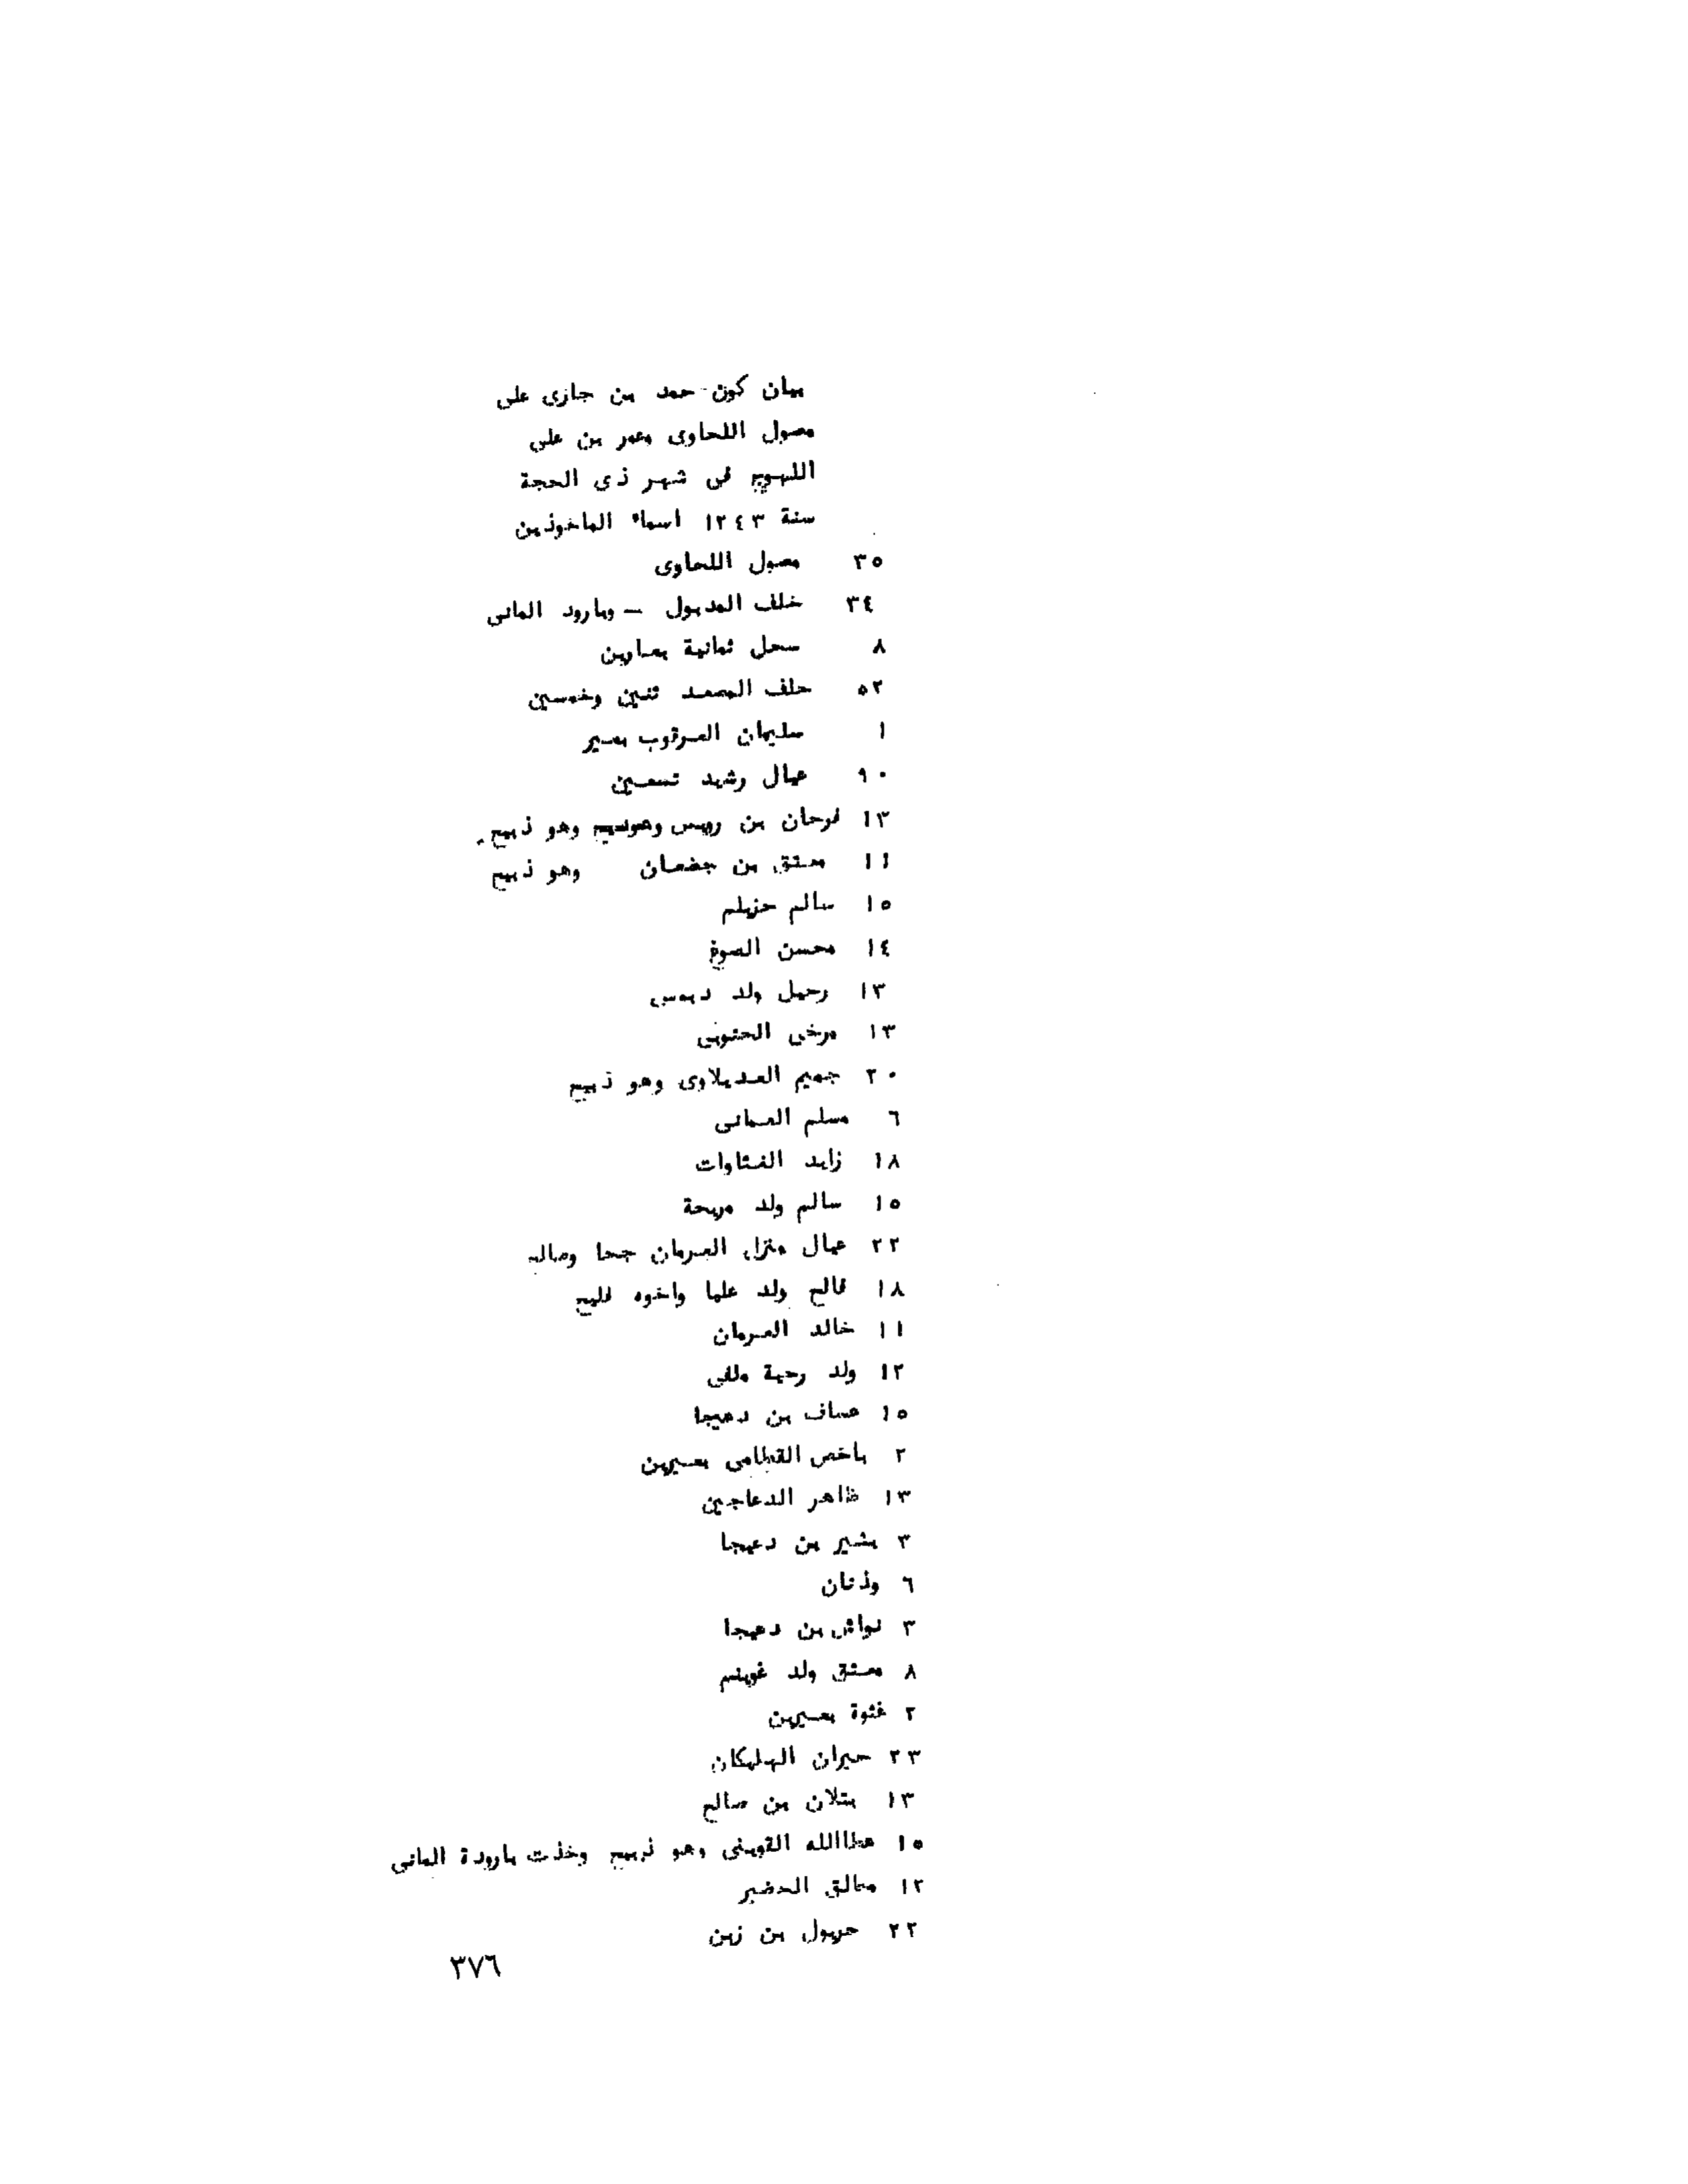 بيان كون حمد بن جازى على
معبول اللحاوى وعمر بن على
اللهويج فى شهر ذى الحجة
سنة ١٢٤٣ اسماء الماخوذين
٣٥ معبول اللحاوى
٣٤ خلف المدبول — وبارود المانى
٨ سحل ثمانية بعارين
٥٢ حلف المصعد ثنين وخمسين
١ سليمان العرقوب بعير
٩٠ عيال رشيد تسعين
١٣ فرحان بن رويس وهو ذبيح
١١ معتق بن جضعان وهو ذبيح
١٥ سالم حزيلم
١٤ محسن الصوغ
١٣ رحيل ولد دبوس
١٣ مرخى الحنوبى
٢٠ جهيم العديلاوى وهو ذبيح
٦ مسلم العمانى
١٨ زايد الفناوات
١٥ سالم ولد مريحة
٢٢ عيال منزل العرمان جحا وصالح
١٨ فالح ولد عليا واخوه فليح
١١ خالد العرمان
١٢ ولد رحية ملفى
١٥ عساف بن دعيجا
٢ باخص القطامى بعيرين
١٣ ظاهر الدعاجين
٣ بشير بن دعيجا
٦ وذنان
٣ نواش بن دعيجا
٨ معتق ولد غوينم
٢ غثوة بعيرين
٢٣ حيران الهليكان
١٣ بتلان بن صالح
١٥ عطاالله القوينى وهو ذبيح وخذت بارودة المانى
١٢ الحضير
٢٢ حربول بن زبن
٣٧٦